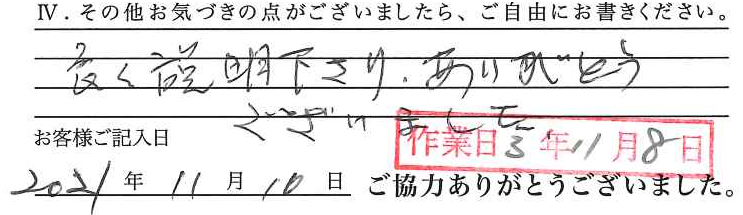 Ⅳ．その他お気づきの点がございましたら、ご自由にお書きください。
良く説明下さり．ありがとう
ございました
作業日3年11月8日
お客様ご記入日
2021年11月10日 ご協力ありがとうございました。